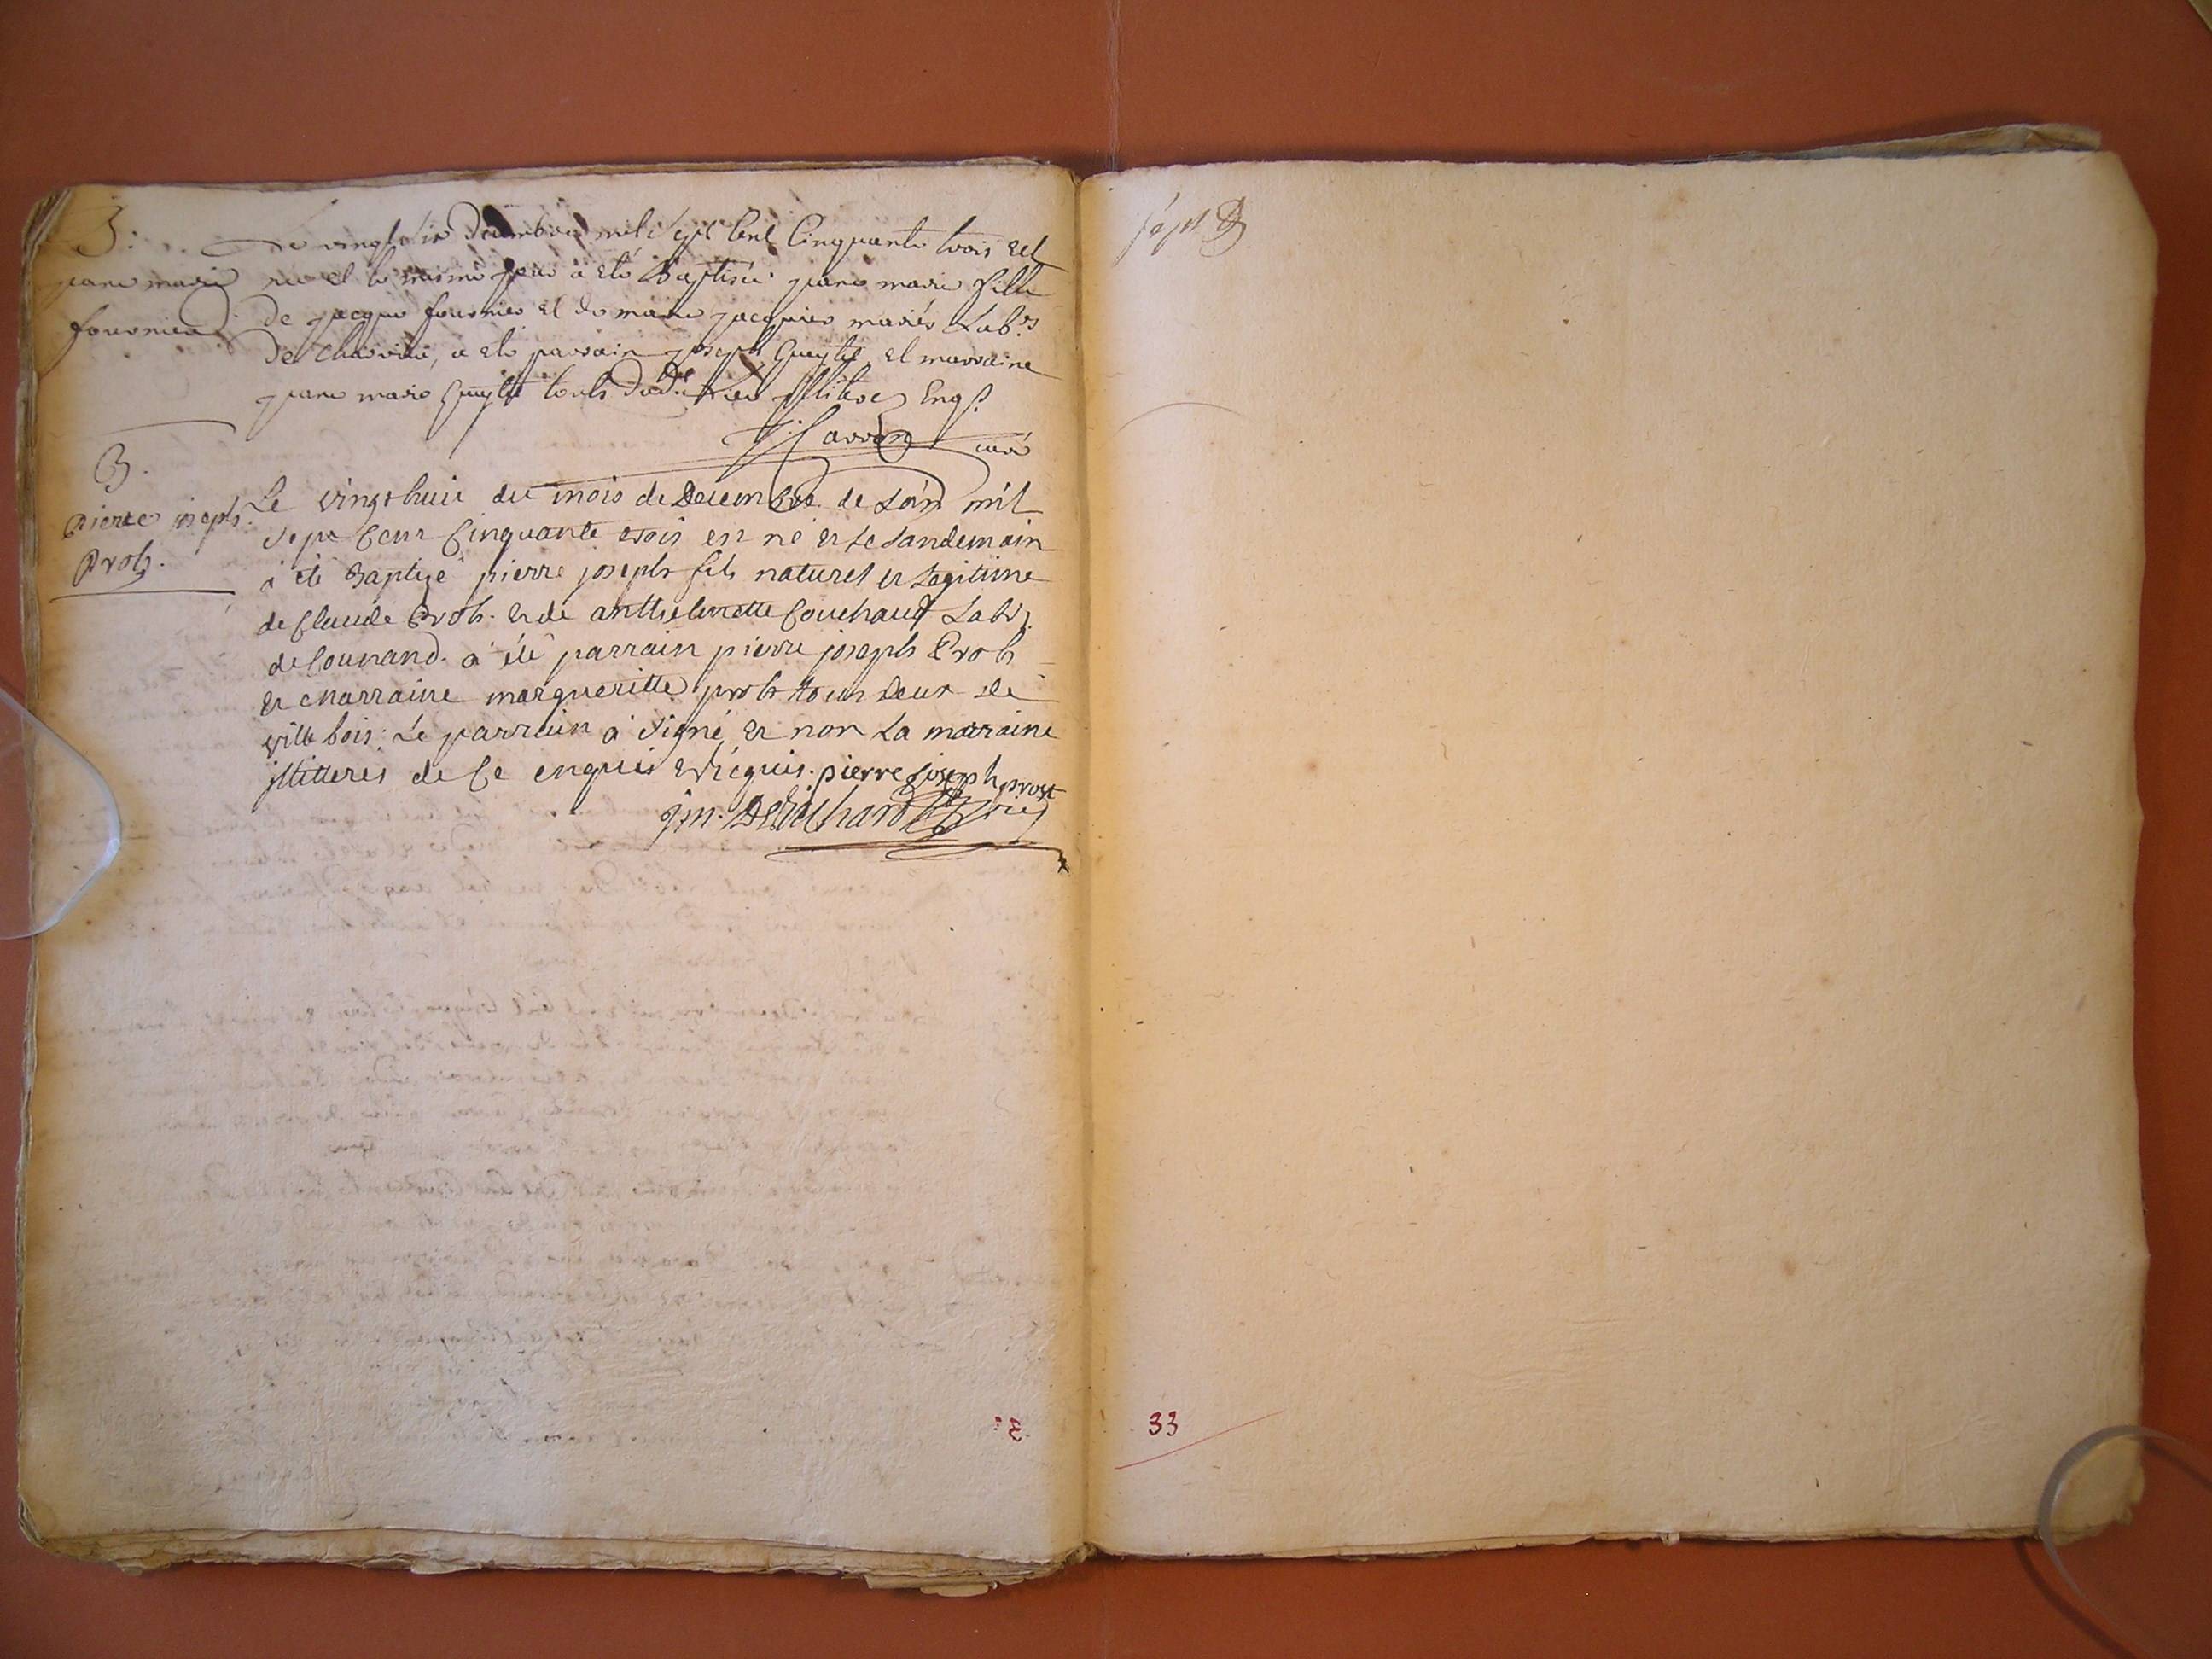 B:
jeane marie
fournier
Le vingt six decembre mil sept cent Cinquante trois est
née et le mesme jour a eté Baptisée jeane marie fille
de jacque fournier et de marie jacquier mariés Lab.rs
de, a eté parrain joseph Guylit et marraine
jeane marie Guylit touts illiteres Enq.s
curé
B.
pierre joseph
Prob.
Le vingt huit du mois de Decembre de L'an mil
Sept Cent Cinquante trois est né et Le Landemain
a été Baptizé pierre joseph fils naturel et Legitime
de Claude Prob. et de anthelmette Couchaud Lab.
de Counand. a été parrain pierre joseph Prob
et marraine margueritte prob tous deux de
ville bois. Le parrain a signé et non La marraine
illitteres de Ce enquis et réquis. pierre joseph prost
33